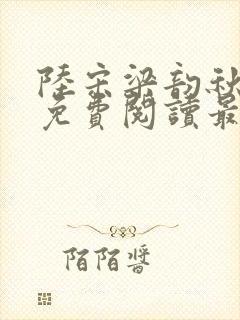 陸宗梁韵秋
免費閱讀最
陌陌醬